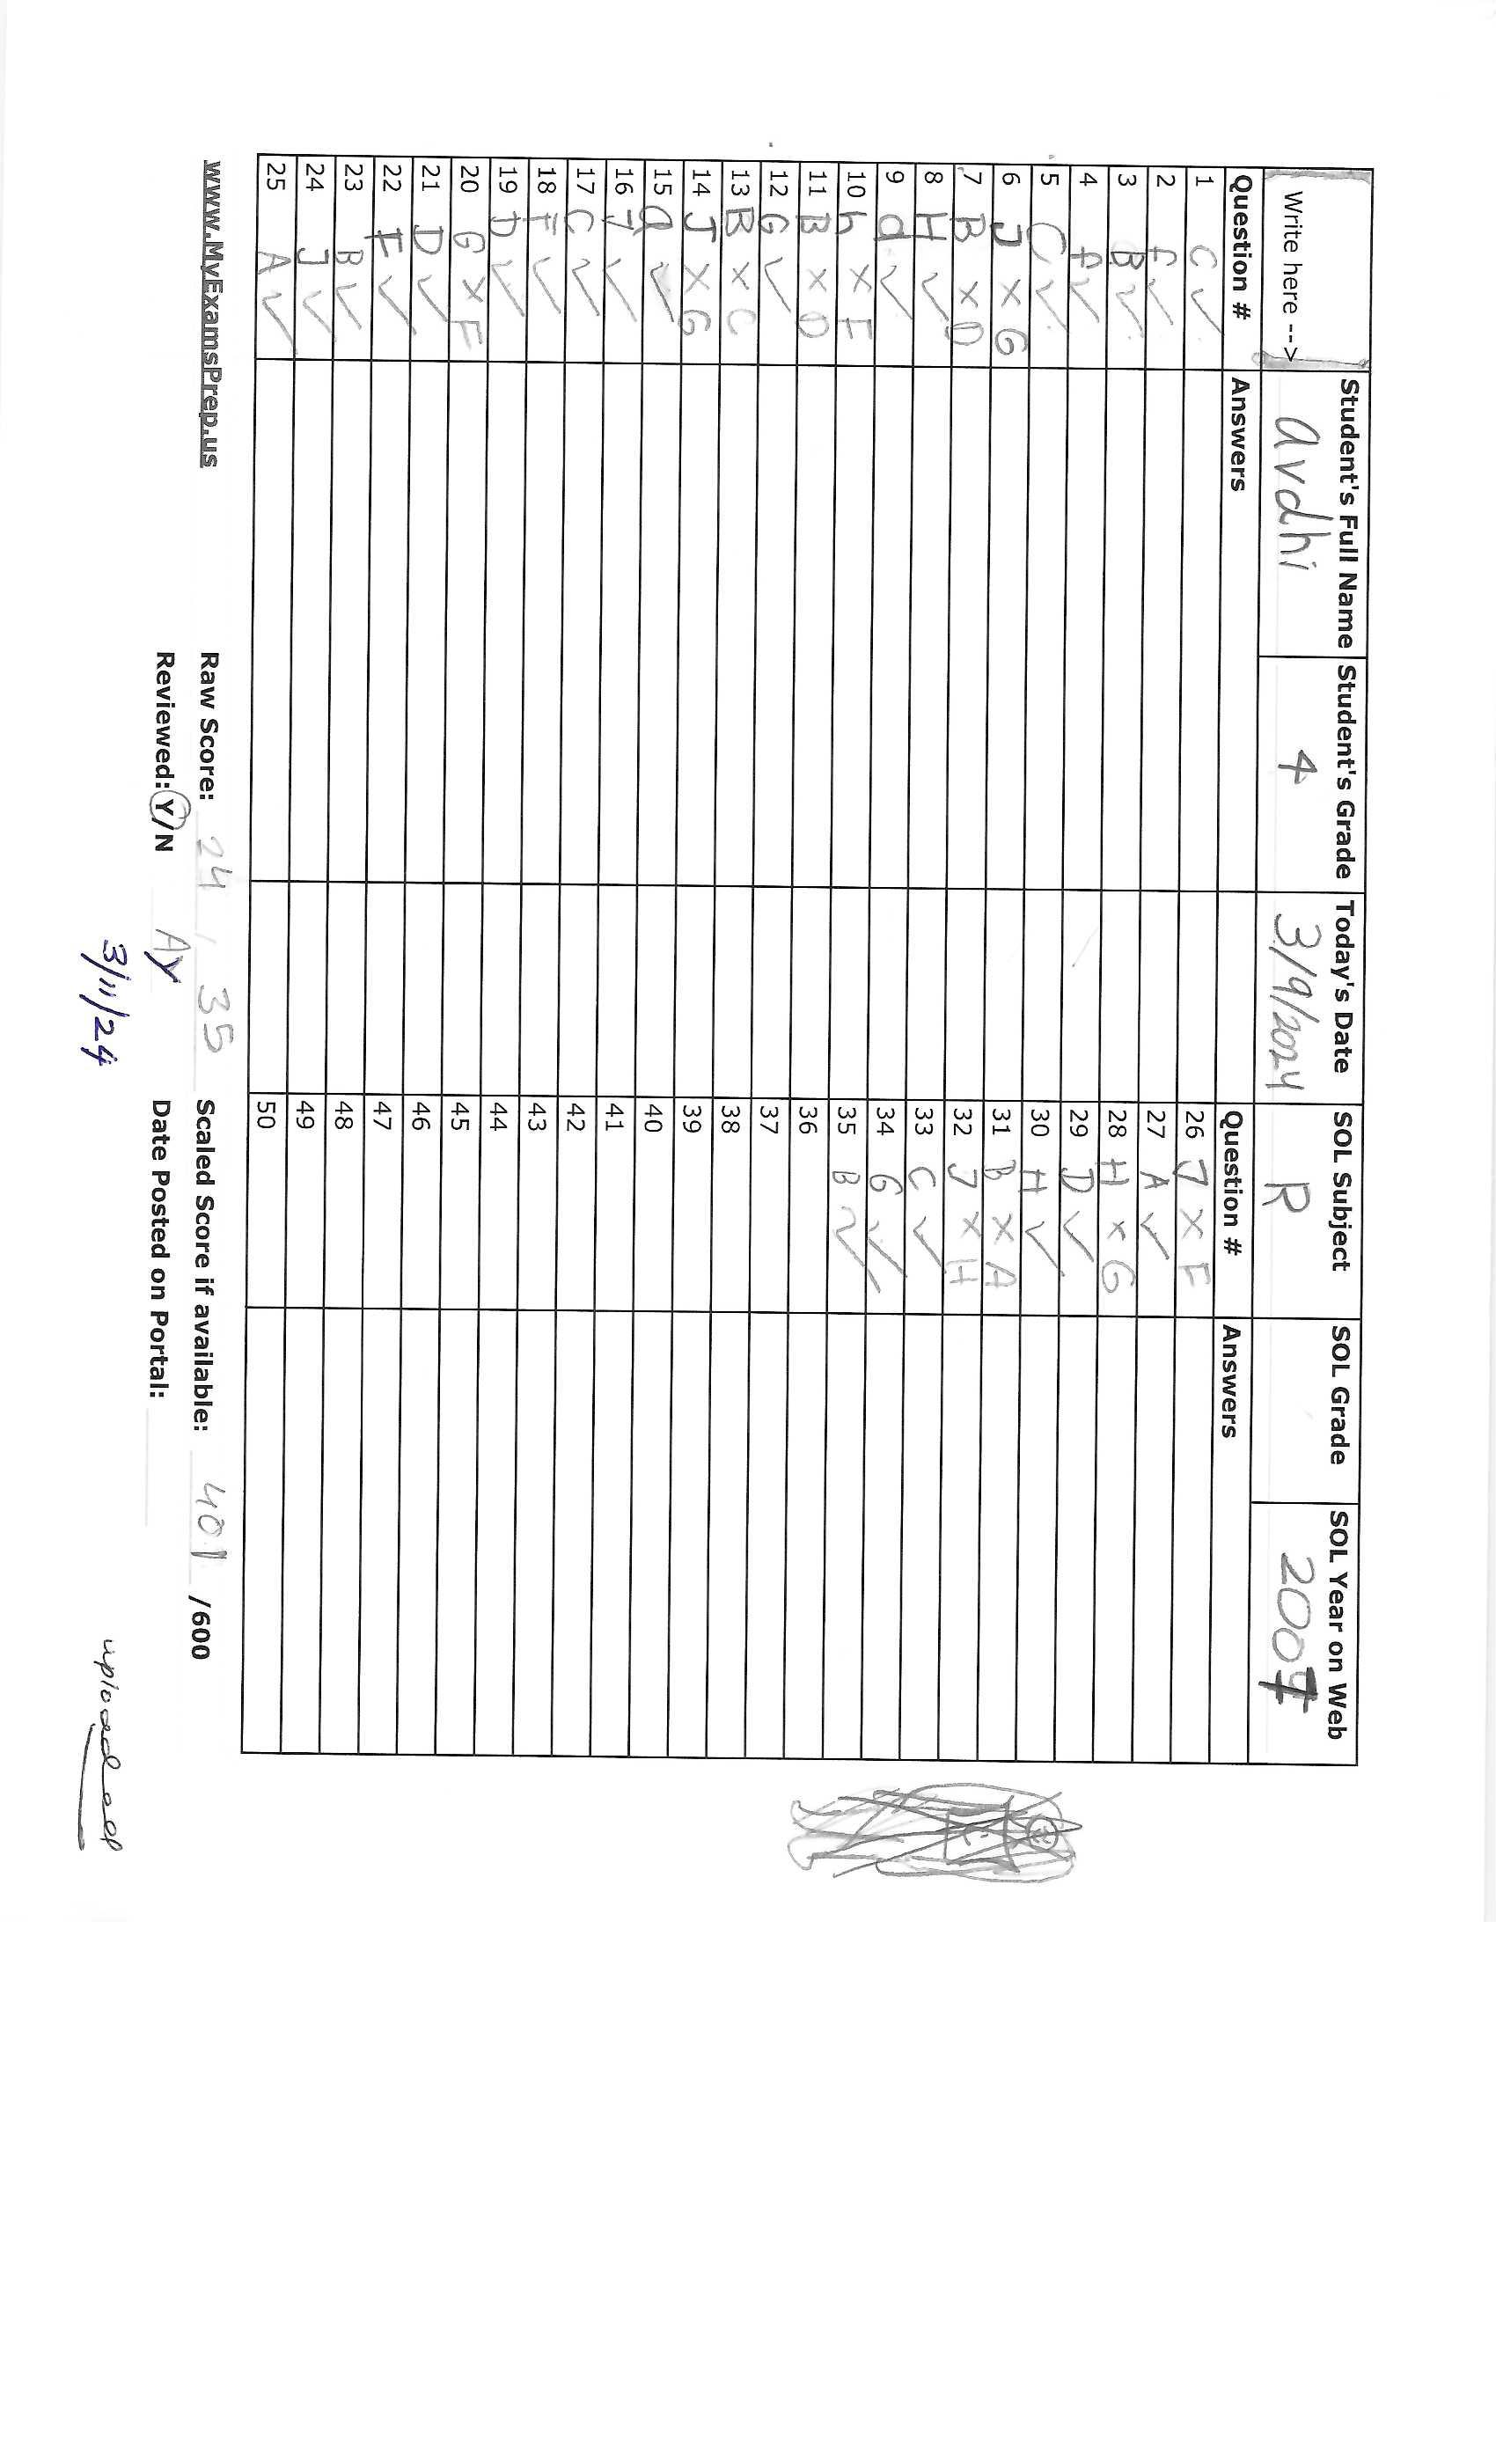 Write here --> Student's Full Name Student's Grade Today's Date SOL Subject SOL Grade SOL Year on Web
avdhi 4 3/9/2024 R 2007
Question # Answers Question # Answers
1 C ✓ 26 J x F
2 f ✓ 27 A ✓
3 B ✓ 28 H x G
4 ✓ 29 D ✓
5 C ✓ 30 H ✓
6 J x G 31 B x A
7 B x D 32 J x H
8 H ✓ 33 C ✓
9 d ✓ 34 G ✓
10 h x F 35 B ✓
11 B x D 36
12 G ✓ 37
13 B x C 38
14 J x G 39
15 a ✓ 40
16 J ✓ 41
17 C ✓ 42
18 F ✓ 43
19 D ✓ 44
20 G x F 45
21 D ✓ 46
22 F ✓ 47
23 B ✓ 48
24 J ✓ 49
25 A ✓ 50
www.MyExamsPrep.us Raw Score: 24 / 35 Scaled Score if available: 401 /600
Reviewed: Y/N Ay Date Posted on Portal:
3/11/24
uploaded